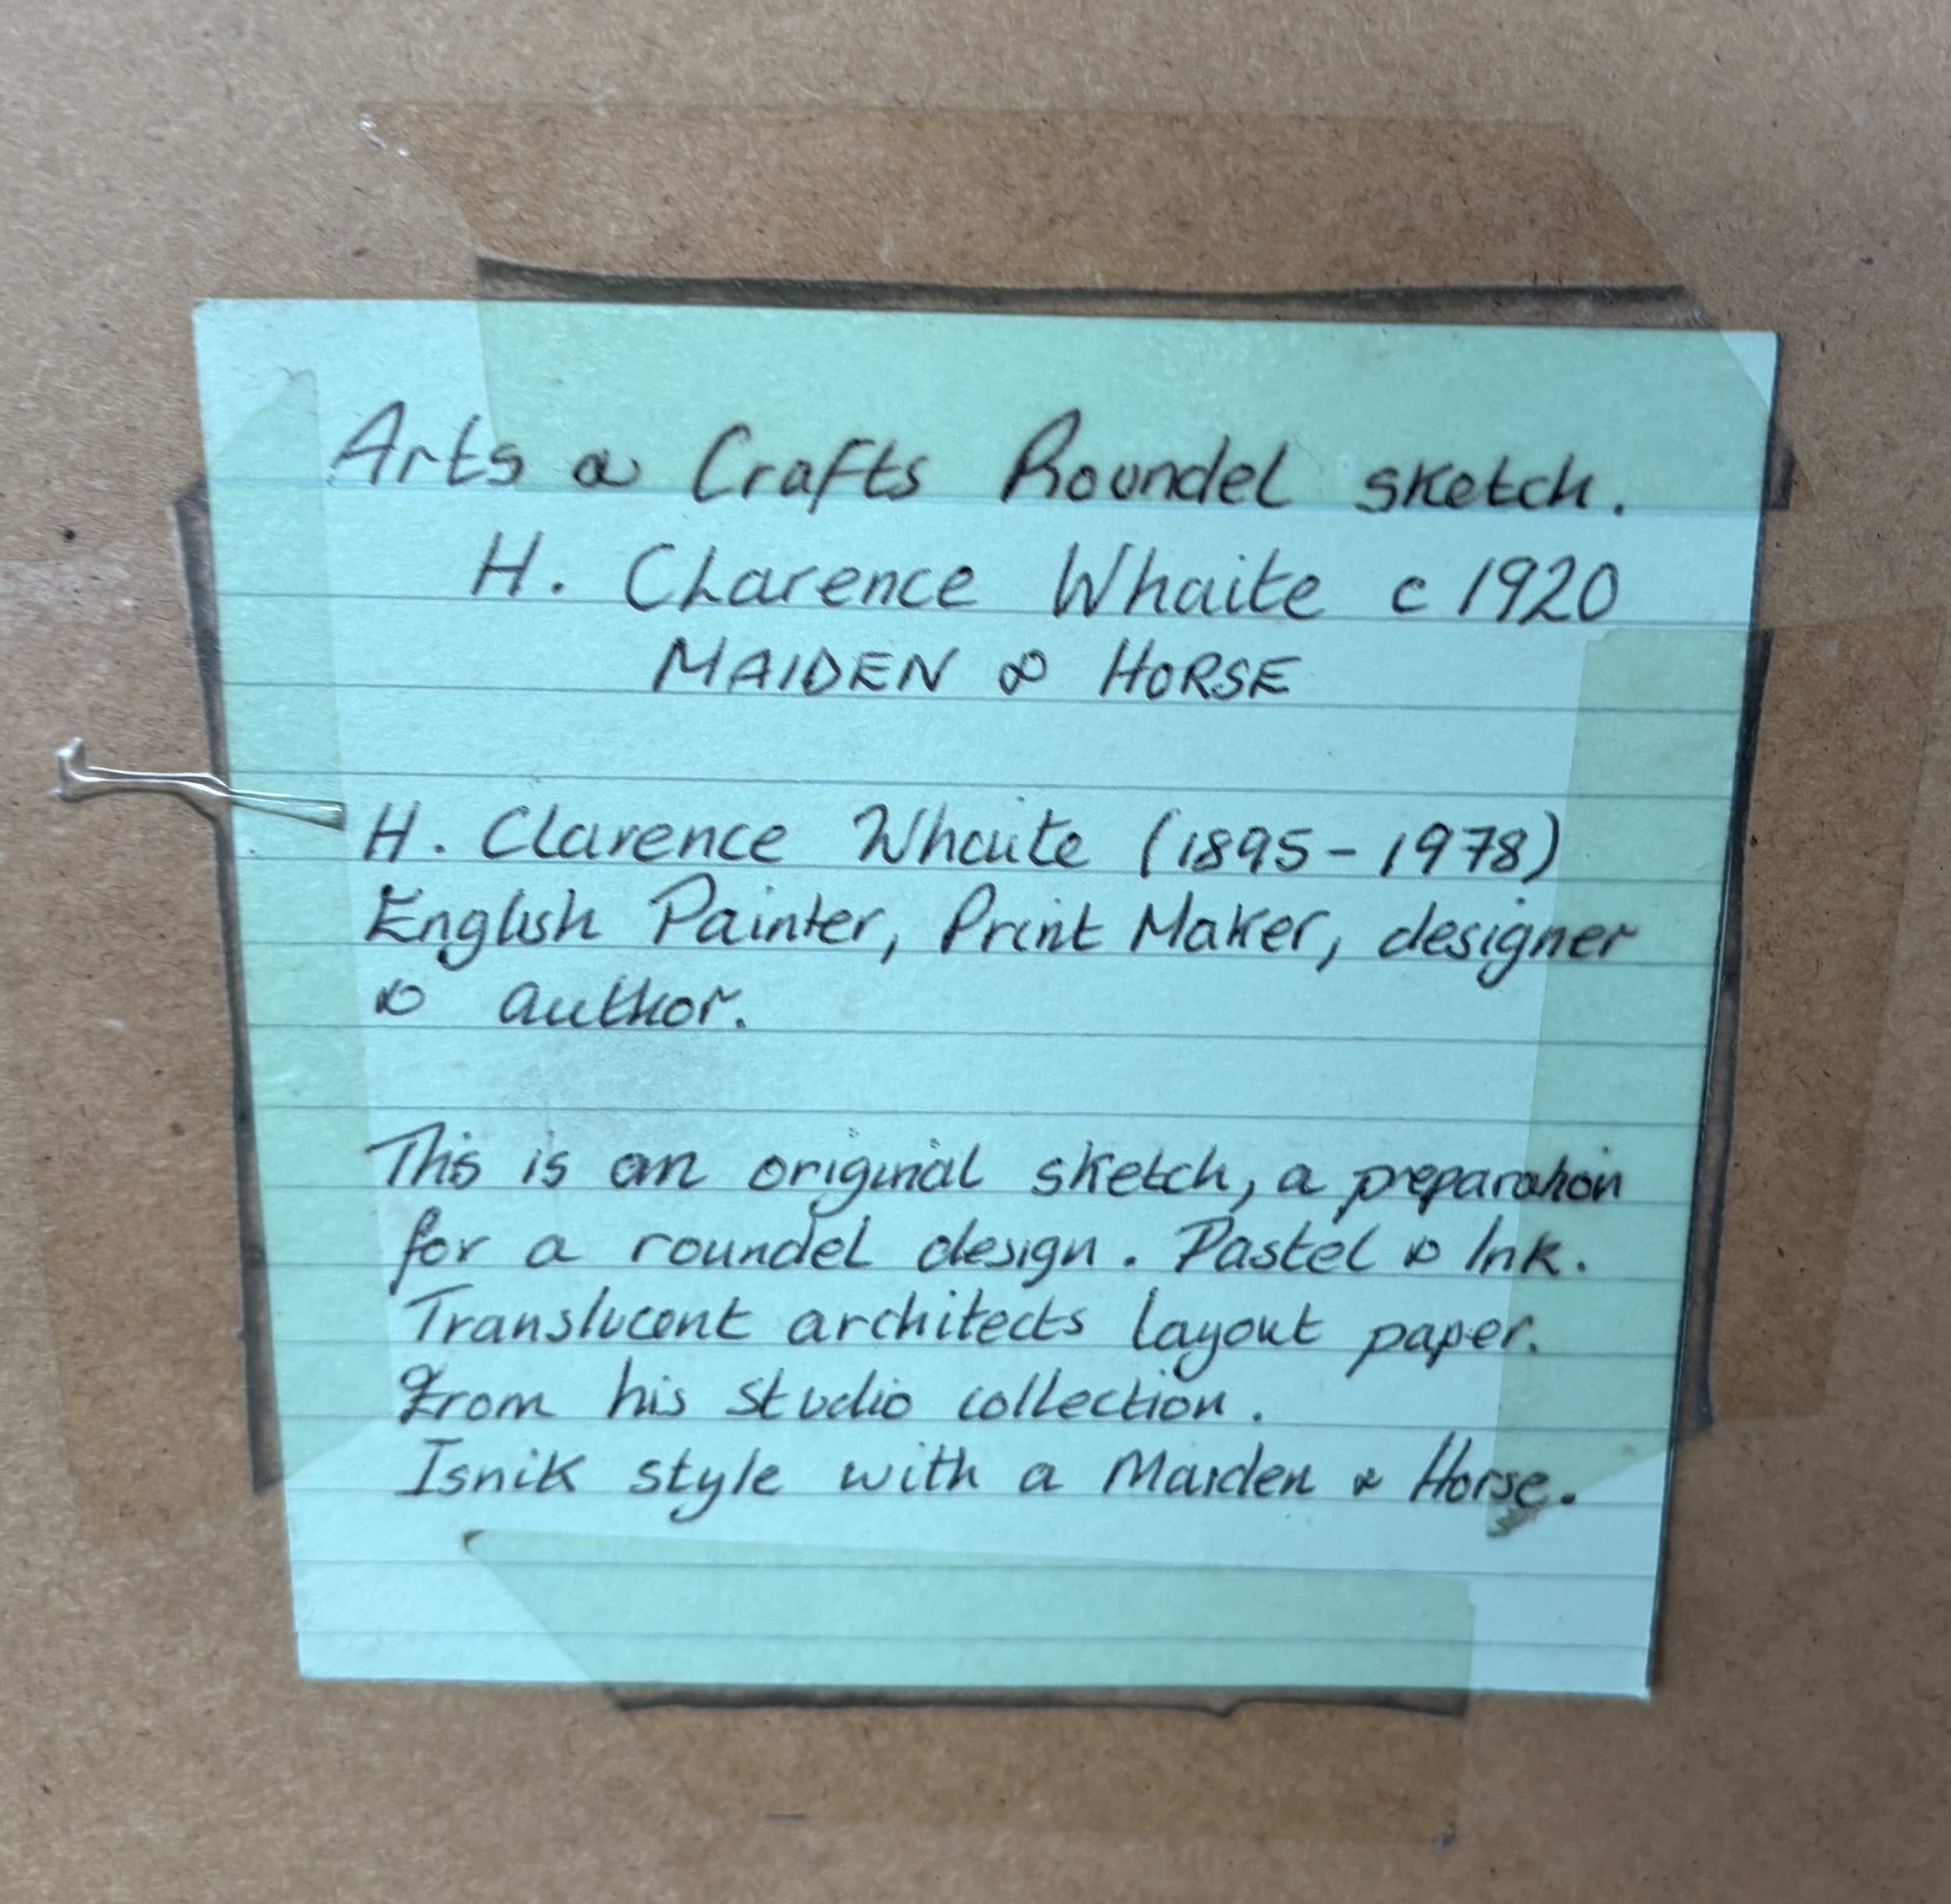 Arts & Crafts Roundel sketch.
H. Clarence Whaite c 1920
MAIDEN & HORSE
H. Clarence Whaite (1895-1978)
English Painter, Print Maker, designer
& author.
This is an original sketch, a preparation
for a roundel design. Pastel & Ink.
Translucent architects layout paper.
From his studio collection.
Isnik style with a Maiden & Horse.